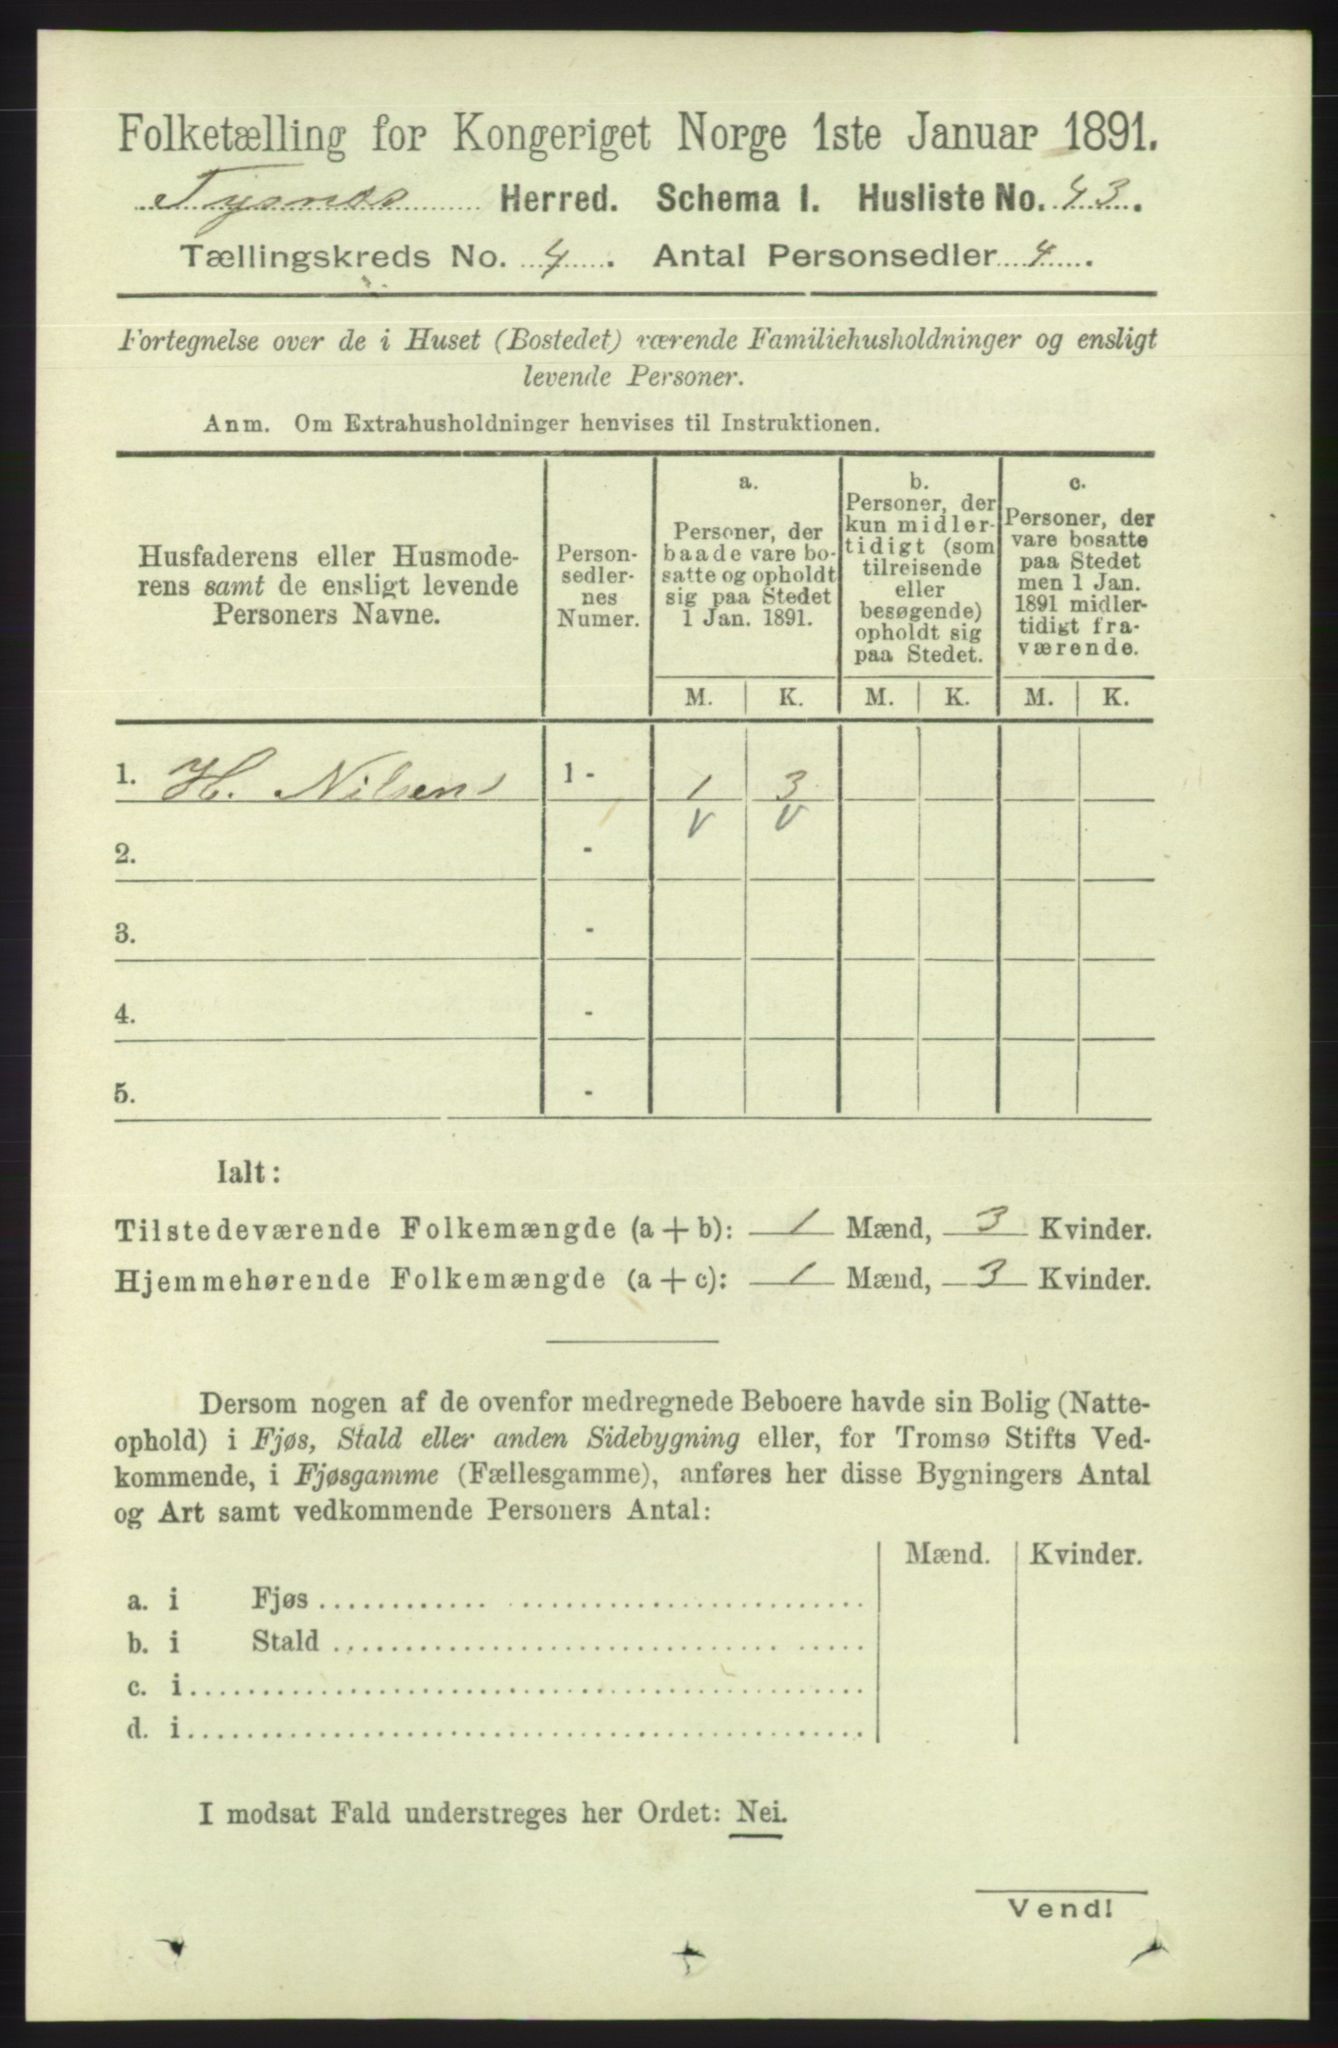 Folketælling for Kongeriget Norge 1ste Januar 1891.
Tysnes Herred. Schema I. Husliste No. 43.
Tællingskreds No. 4. Antal Personsedler 4.
Fortegnelse over de i Huset (Bostedet) værende Familiehusholdninger og ensligt
levende Personer.
Anm. Om Extrahusholdninger henvises til Instruktionen.
Husfaderens eller Husmode-
rens samt de ensligt levende
Personers Navne.
Person-
sedler-
nes
Numer.
a.
Personer, der
baade vare bo-
satte og opholdt
sig paa Stedet
1 Jan. 1891.
b.
Personer, der
kun midler-
tidigt (som
tilreisende
eller
besøgende)
opholdt sig
paa Stedet.
c.
Personer, der
vare bosatte
paa Stedet
men 1 Jan.
1891 midler-
tidigt fra-
værende.
M. K. M. K. M. K.
1. H. Nilsen 1 - 1 3
V V
2. -
3. -
4. -
5. -
Ialt:
Tilstedeværende Folkemængde (a + b): 1 Mænd, 3 Kvinder.
Hjemmehørende Folkemængde (a + c): 1 Mænd, 3 Kvinder.
Dersom nogen af de ovenfor medregnede Beboere havde sin Bolig (Natte-
ophold) i Fjøs, Stald eller anden Sidebygning eller, for Tromsø Stifts Ved-
kommende, i Fjøsgamme (Fællesgamme), anføres her disse Bygningers Antal
og Art samt vedkommende Personers Antal:
Mænd. Kvinder.
a. i Fjøs
b. i Stald
c. i
d. i
I modsat Fald understreges her Ordet: Nei.
Vend!